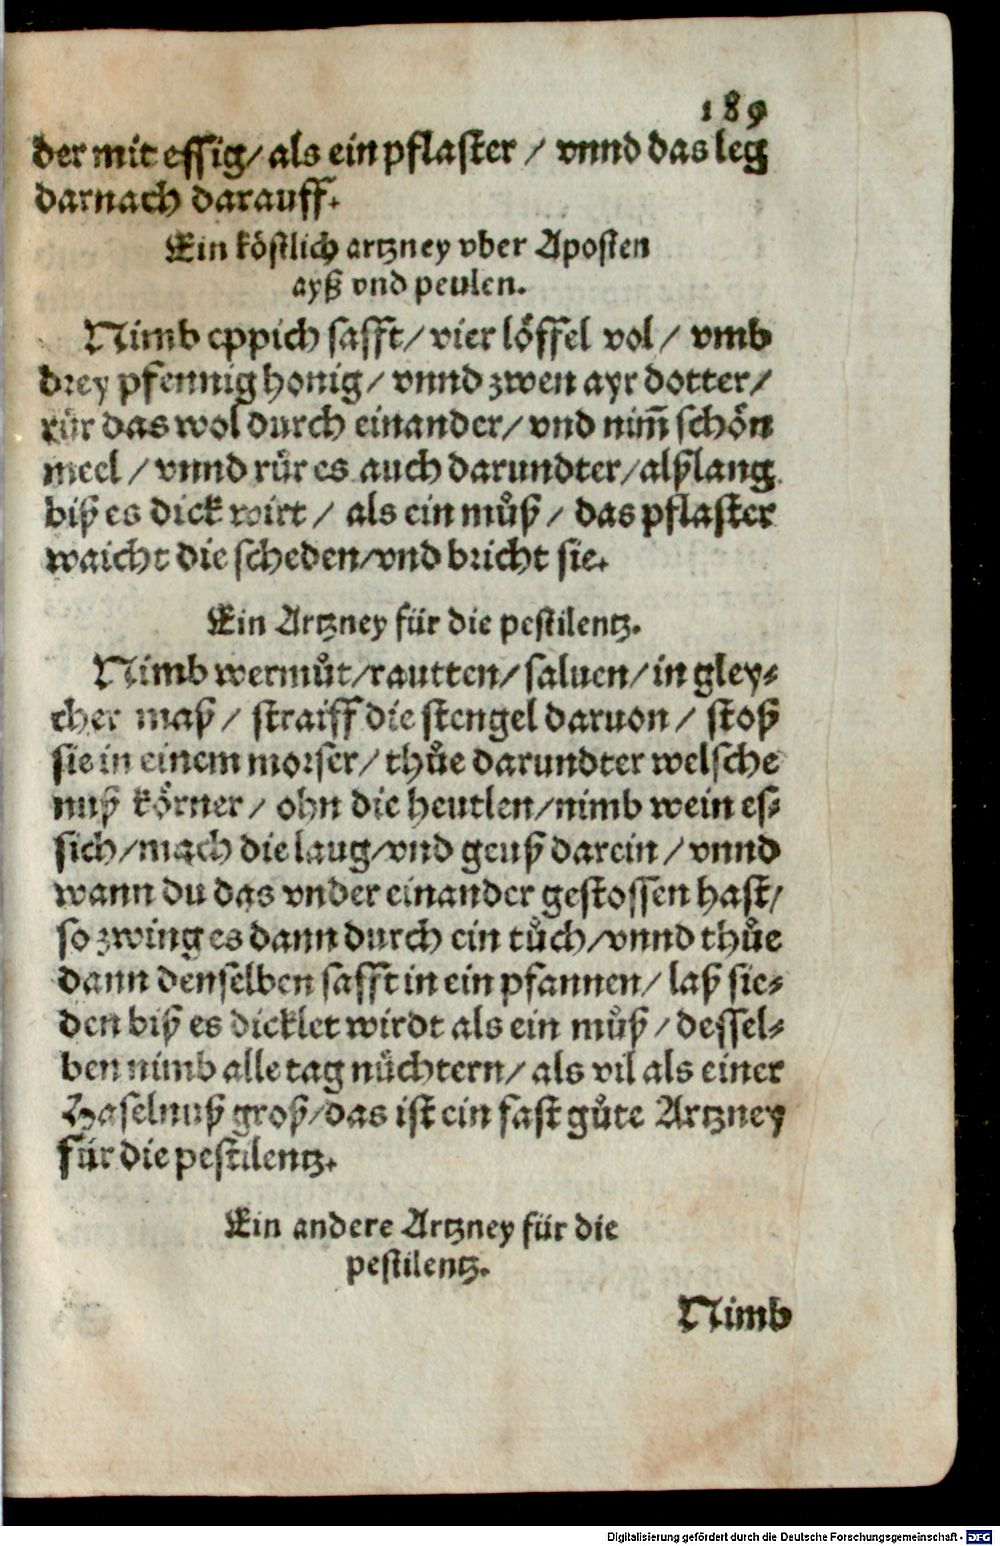 189
der mit essig/ als ein pflaster / vnnd das leg
darnach darauff.
Ein köstlich artzney vber Aposten
ayß vnd peulen.
Nimb eppich safft/ vier löffel vol / vmb
drey pfennig honig/ vnnd zwen ayr dotter/
rür das wol durch einander/ vnd nim̃ schön
meel / vnnd růr es auch darundter/alßlang
biß es dick wirt / als ein můß / das pflaster
waicht die scheden/vnd bricht sie.
Ein Artzney für die pestilentz.
Nimb wermůt/rautten/saluen/in gley⸗
cher maß / straiff die stengel daruon / stoß
sie in einem morser/ thůe darundter welsche
nuß körner/ ohn die heutlen/nimb wein es⸗
sich/mach die laug/vnd geuß darein / vnnd
wann du das vnder einander gestossen hast/
so zwing es dann durch ein tůch/vnnd thůe
dann denselben safft in ein pfannen/ laß sie⸗
den biß es dicklet wirdt als ein můß / dessel⸗
ben nimb alle tag nůchtern/ als vil als einer
Haselnuß groß/das ist ein fast gůte Artzney
für die pestilentz.
Ein andere Artzney für die
pestilentz.
Nimb
Digitalisierung gefördert durch die Deutsche Forschungsgemeinschaft - DFG